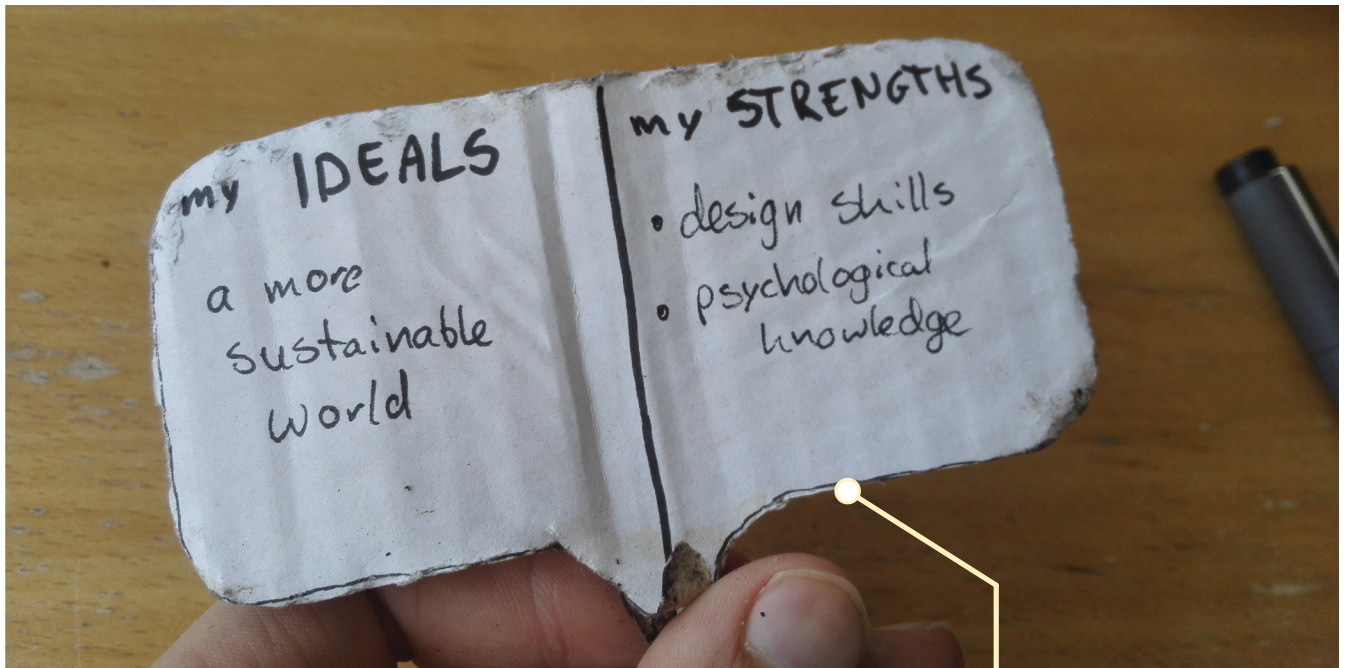 my IDEALS
a more
sustainable
world
my STRENGTHS
• design skills
• psychological
knowledge